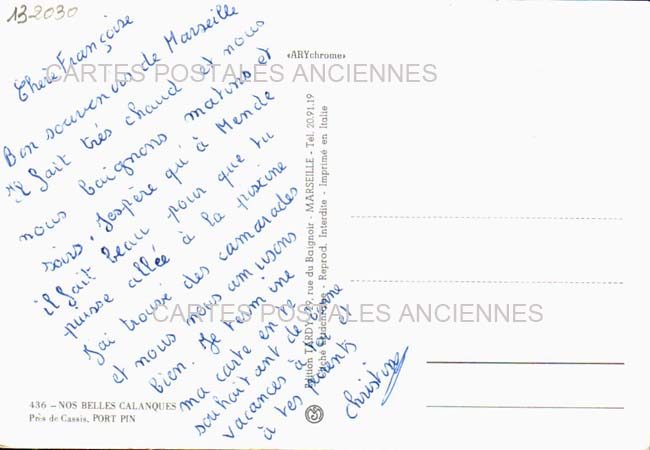 13-2030
«ARYchrome»
CARTES POSTALES ANCIENNES
Chère Françoise
Bon souvenirs de Marseille
il fait très chaud et nous
nous baignons matins et
soirs. J'espère qu'à Mende
il fait beau pour que tu
puisse allée à la piscine
J'ai trouvé des camarades
et nous nous amusons
bien. Je termine
ma carte en te
souhaitant de bonne
vacances à toi et
à tes parents
Christine
Edition TARDY, 29, rue du Baignoir - MARSEILLE - Tél. 20.91.19
Cliché - Reprod. Interdite - Imprimé en Italie
CARTES POSTALES ANCIENNES
436 - NOS BELLES CALANQUES
Près de Cassis, PORT PIN